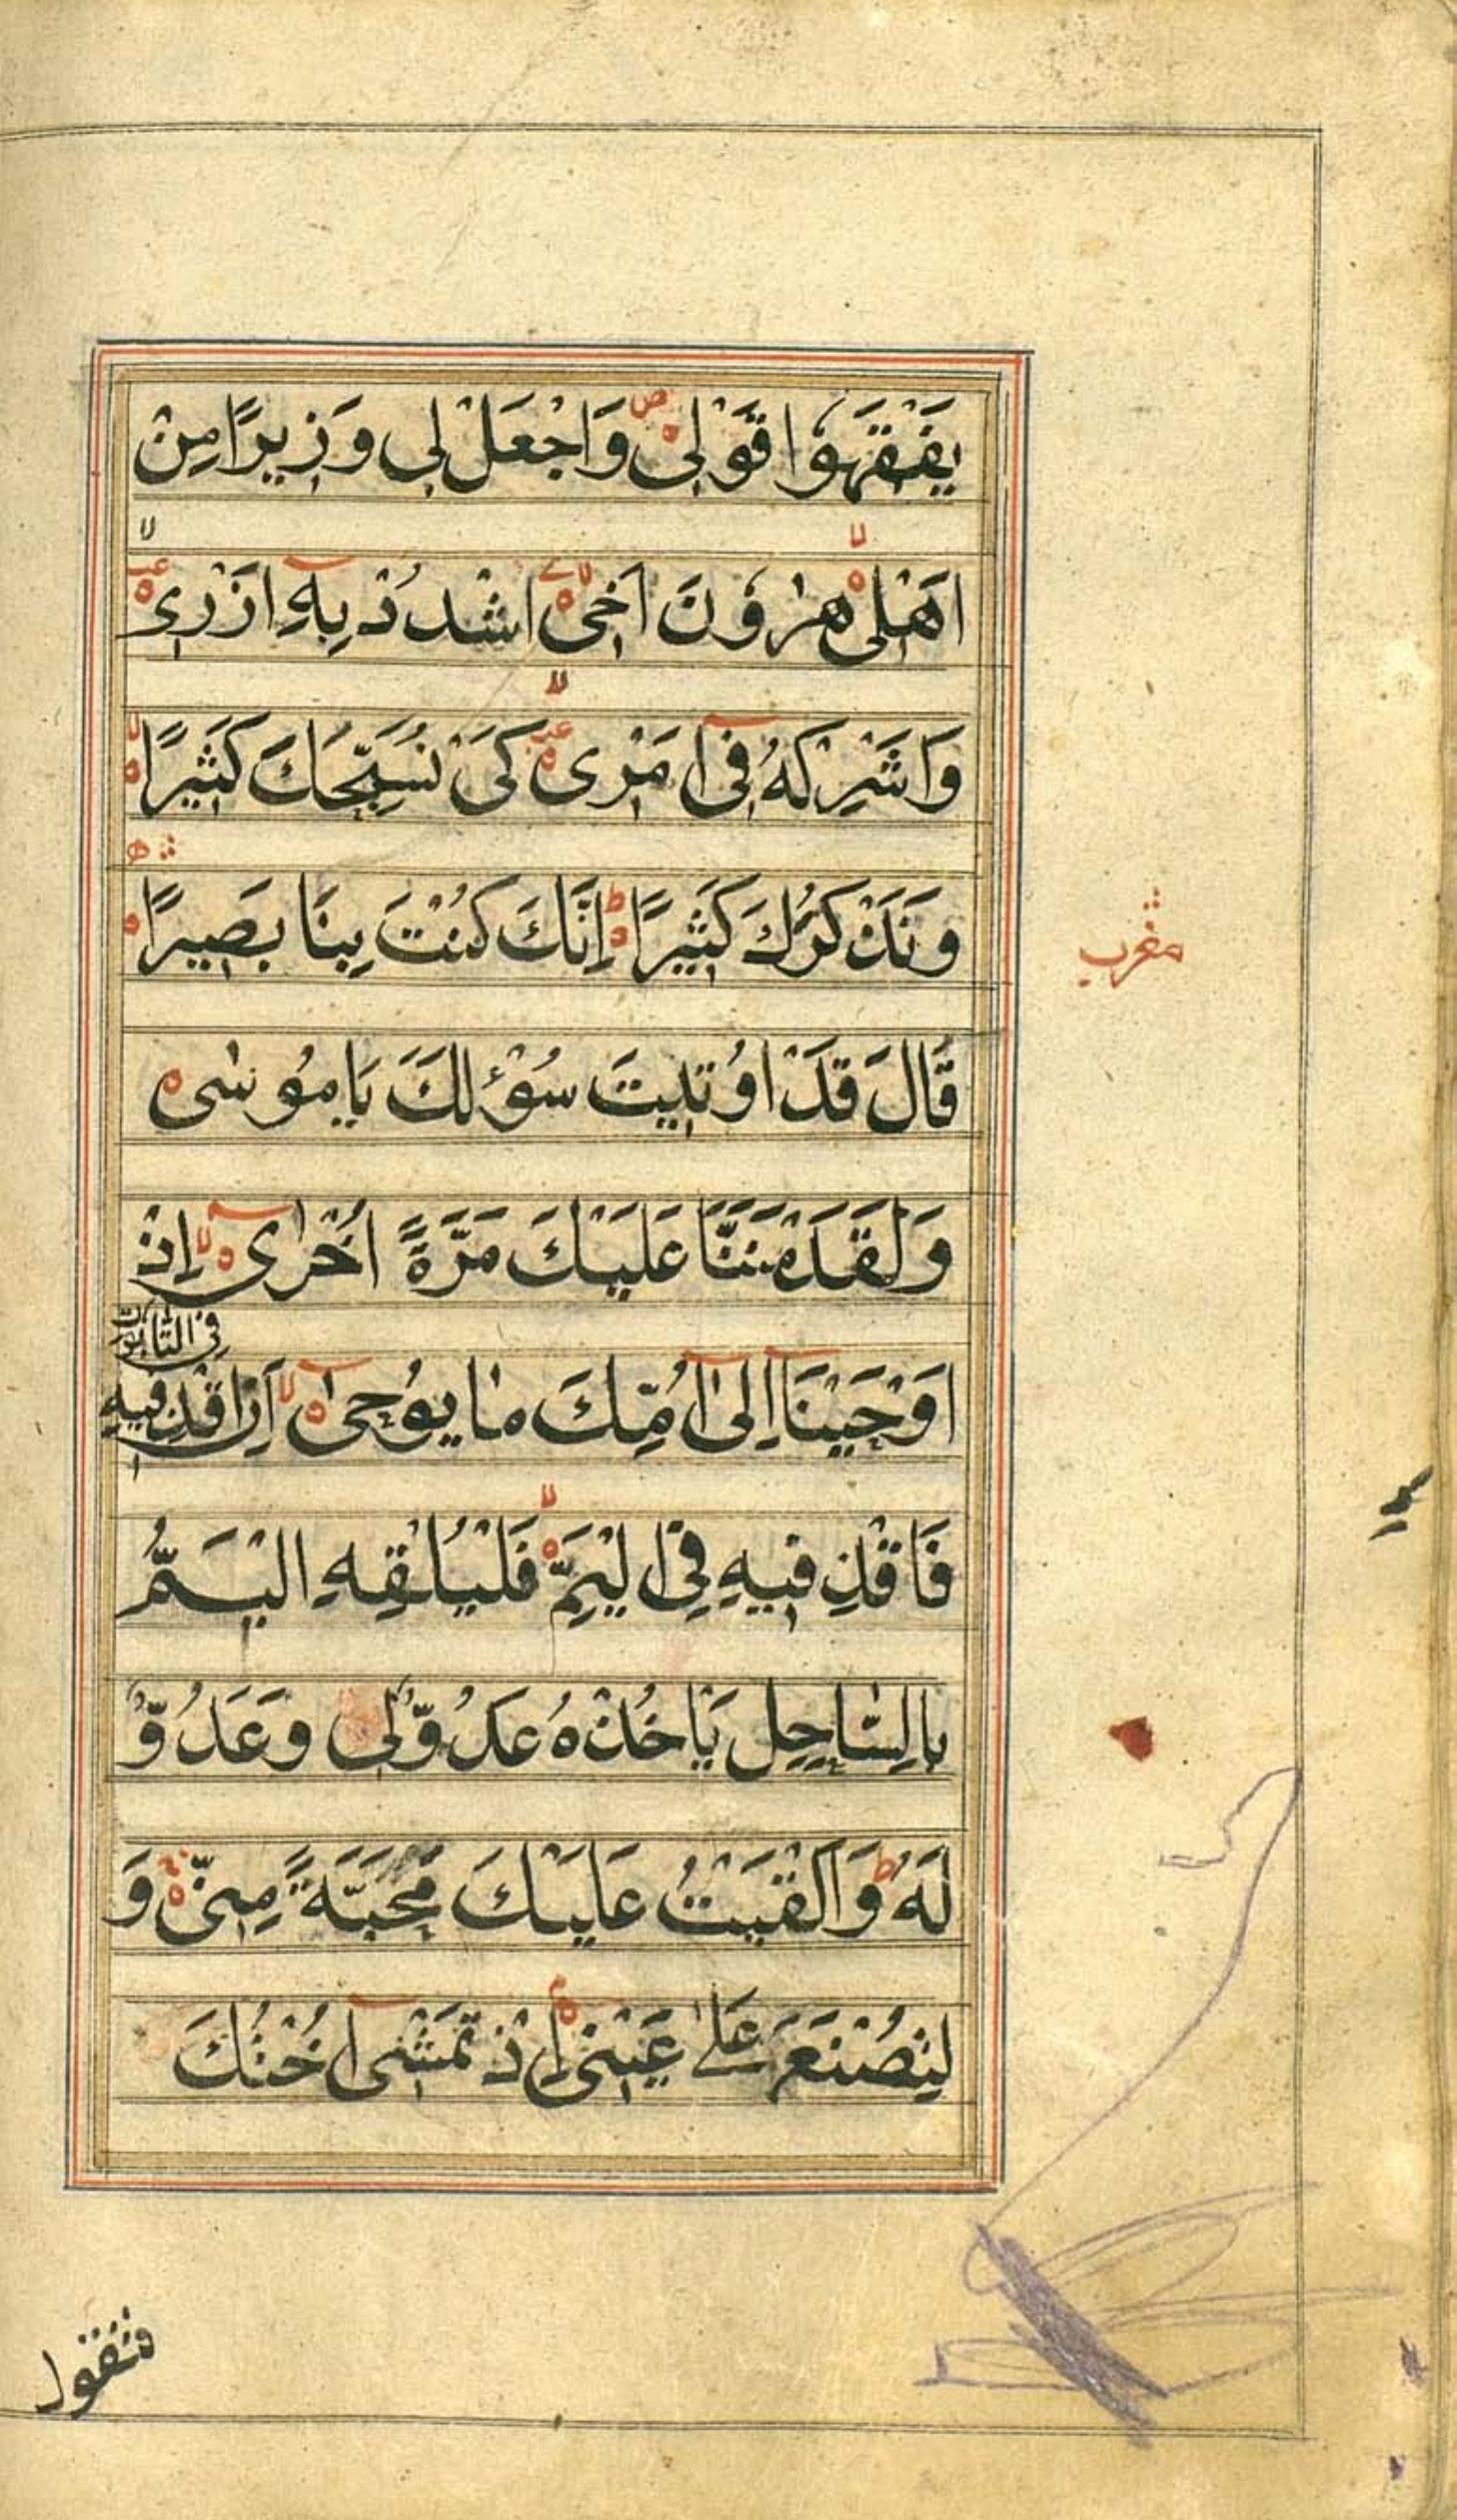 يَفْقَهُوا قَوْلِىْ وَاجْعَلْ لِى وَزِيرًا مِنْ
اَهْلِىْ هٰرُونَ اَخِىْ اشْدُدْ بِهٖ اَزْرِىْ
وَاَشْرِكْهُ فِىٓ اَمْرِىْ كَىْ نُسَبِّحَكَ كَثِيرًا
وَنَذْكُرَكَ كَثِيرًا اِنَّكَ كُنْتَ بِنَا بَصِيرًا
مغرب
قَالَ قَدْ اُوتِيتَ سُؤْلَكَ يَا مُوسٰى
وَلَقَدْ مَنَنَّا عَلَيْكَ مَرَّةً اُخْرٰىٓ اِذْ
اَوْحَيْنَآ اِلٰىٓ اُمِّكَ مَا يُوحٰىٓ اَنِ اقْذِفِيهِ
فِى التَّابُوتِ
فَاقْذِفِيهِ فِى الْيَمِّ فَلْيُلْقِهِ الْيَمُّ
بِالسَّاحِلِ يَاْخُذْهُ عَدُوٌّ لِى وَعَدُوٌّ
لَهُ وَاَلْقَيْتُ عَلَيْكَ مَحَبَّةً مِنِّى وَ
لِتُصْنَعَ عَلٰى عَيْنِى اِذْ تَمْشِىٓ اُخْتُكَ
فتقول